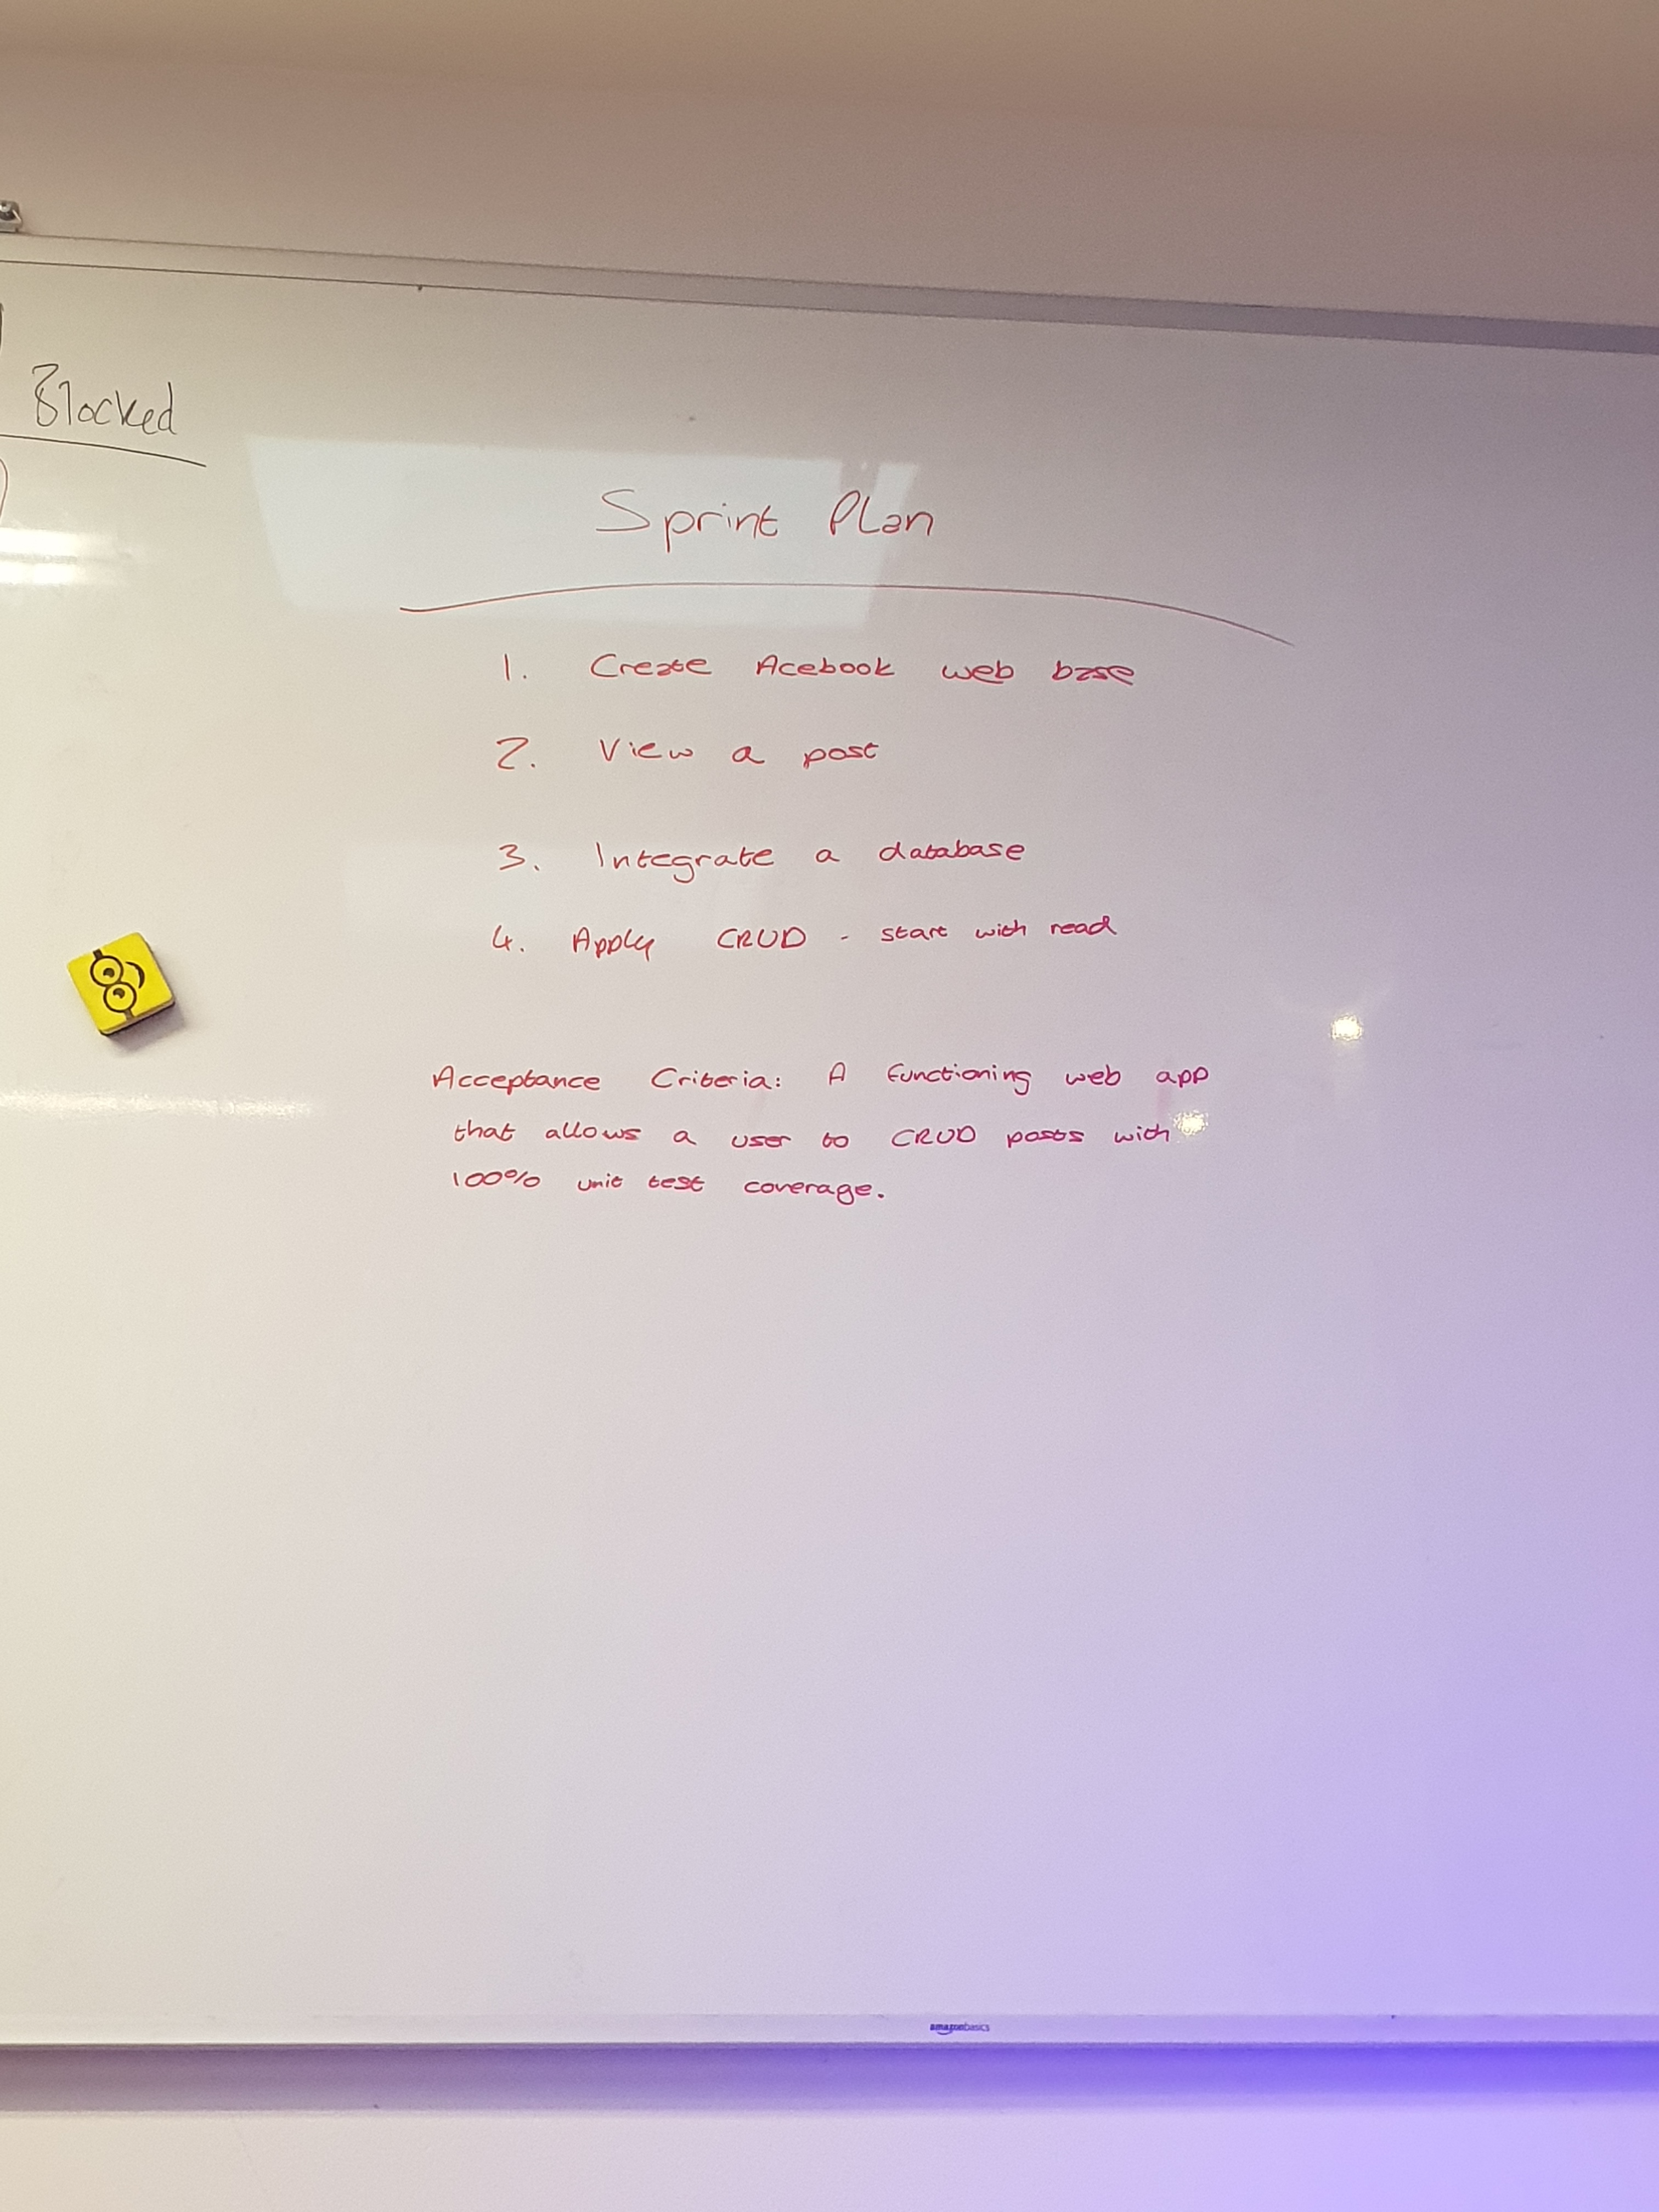 Blocked
Sprint Plan
1. Create Acebook web base
2. View a post
3. Integrate a database
4. Apply CRUD - start with read
Acceptance Criteria: A functioning web app
that allows a user to CRUD posts with
100% unit test coverage.
amazonbasics